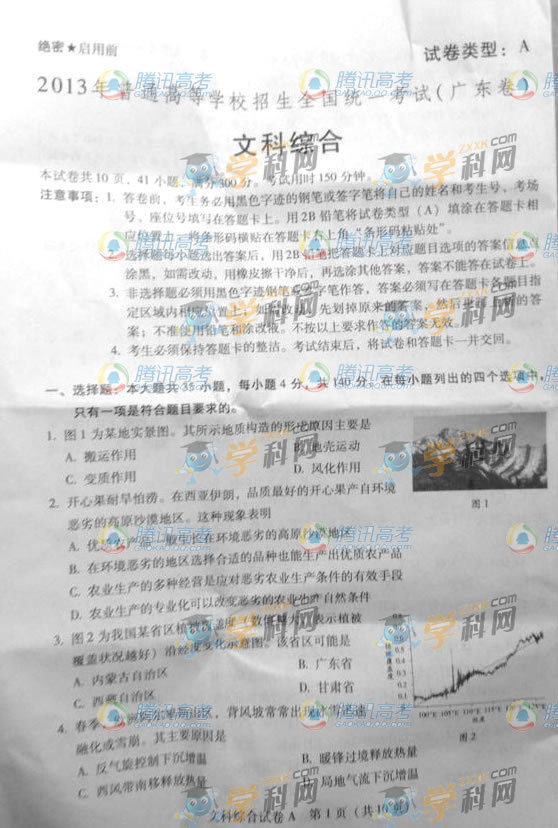 绝密★启用前
试卷类型：A
2013年普通高等学校招生全国统一考试(广东卷)
文科综合
本试卷共10页，41小题，满分300分。考试用时150分钟。
注意事项：1. 答卷前，考生务必用黑色字迹的钢笔或签字笔将自己的姓名和考生号、考场
号、座位号填写在答题卡上。用2B铅笔将试卷类型（A）填涂在答题卡相
应位置上。将条形码横贴在答题卡右上角“条形码粘贴处”。
2. 选择题每小题选出答案后，用2B铅笔把答题卡上对应题目选项的答案信息点
涂黑，如需改动，用橡皮擦干净后，再选涂其他答案，答案不能答在试卷上。
3. 非选择题必须用黑色字迹钢笔或签字笔作答，答案必须写在答题卡各题目指
定区域内相应位置上；如需改动，先划掉原来的答案，然后再写上新的答
案；不准使用铅笔和涂改液。不按以上要求作答的答案无效。
4. 考生必须保持答题卡的整洁。考试结束后，将试卷和答题卡一并交回。
一、选择题：本大题共35小题，每小题4分，共140分。在每小题列出的四个选项中，
只有一项是符合题目要求的。
1. 图1为某地实景图。其所示地质构造的形成原因主要是
A. 搬运作用 B. 地壳运动
C. 变质作用 D. 风化作用
图1
2. 开心果耐旱怕涝。在西亚伊朗，品质最好的开心果产自环境
恶劣的高原沙漠地区。这种现象表明
A. 优质农产品一般生长在环境恶劣的高原沙漠地区
B. 在环境恶劣的地区选择合适的品种也能生产出优质农产品
C. 农业生产的多种经营是应对恶劣农业生产条件的有效手段
D. 农业生产的专业化可以改变恶劣的农业生产自然条件
3. 图2为我国某省区植被覆盖度（数值越大，表示植被
覆盖状况越好）沿经度变化示意图。该省区可能是
A. 内蒙古自治区 B. 广东省
C. 西藏自治区 D. 甘肃省
植被覆盖度
0.6
0.5
0.4
0.3
0.2
0.1
100°E 105°E 110°E 115°E 120°E 125°E
经度
图2
4. 春季，欧洲阿尔卑斯山区，背风坡常常出现冰雪迅速
融化或雪崩。其主要原因是
A. 反气旋控制下沉增温 B. 暖锋过境释放热量
C. 西风带南移释放热量 D. 局地气流下沉增温
文科综合试卷A 第1页（共10页）
腾讯高考
GAOKAO.QQ.COM
学科网
ZXXK.com